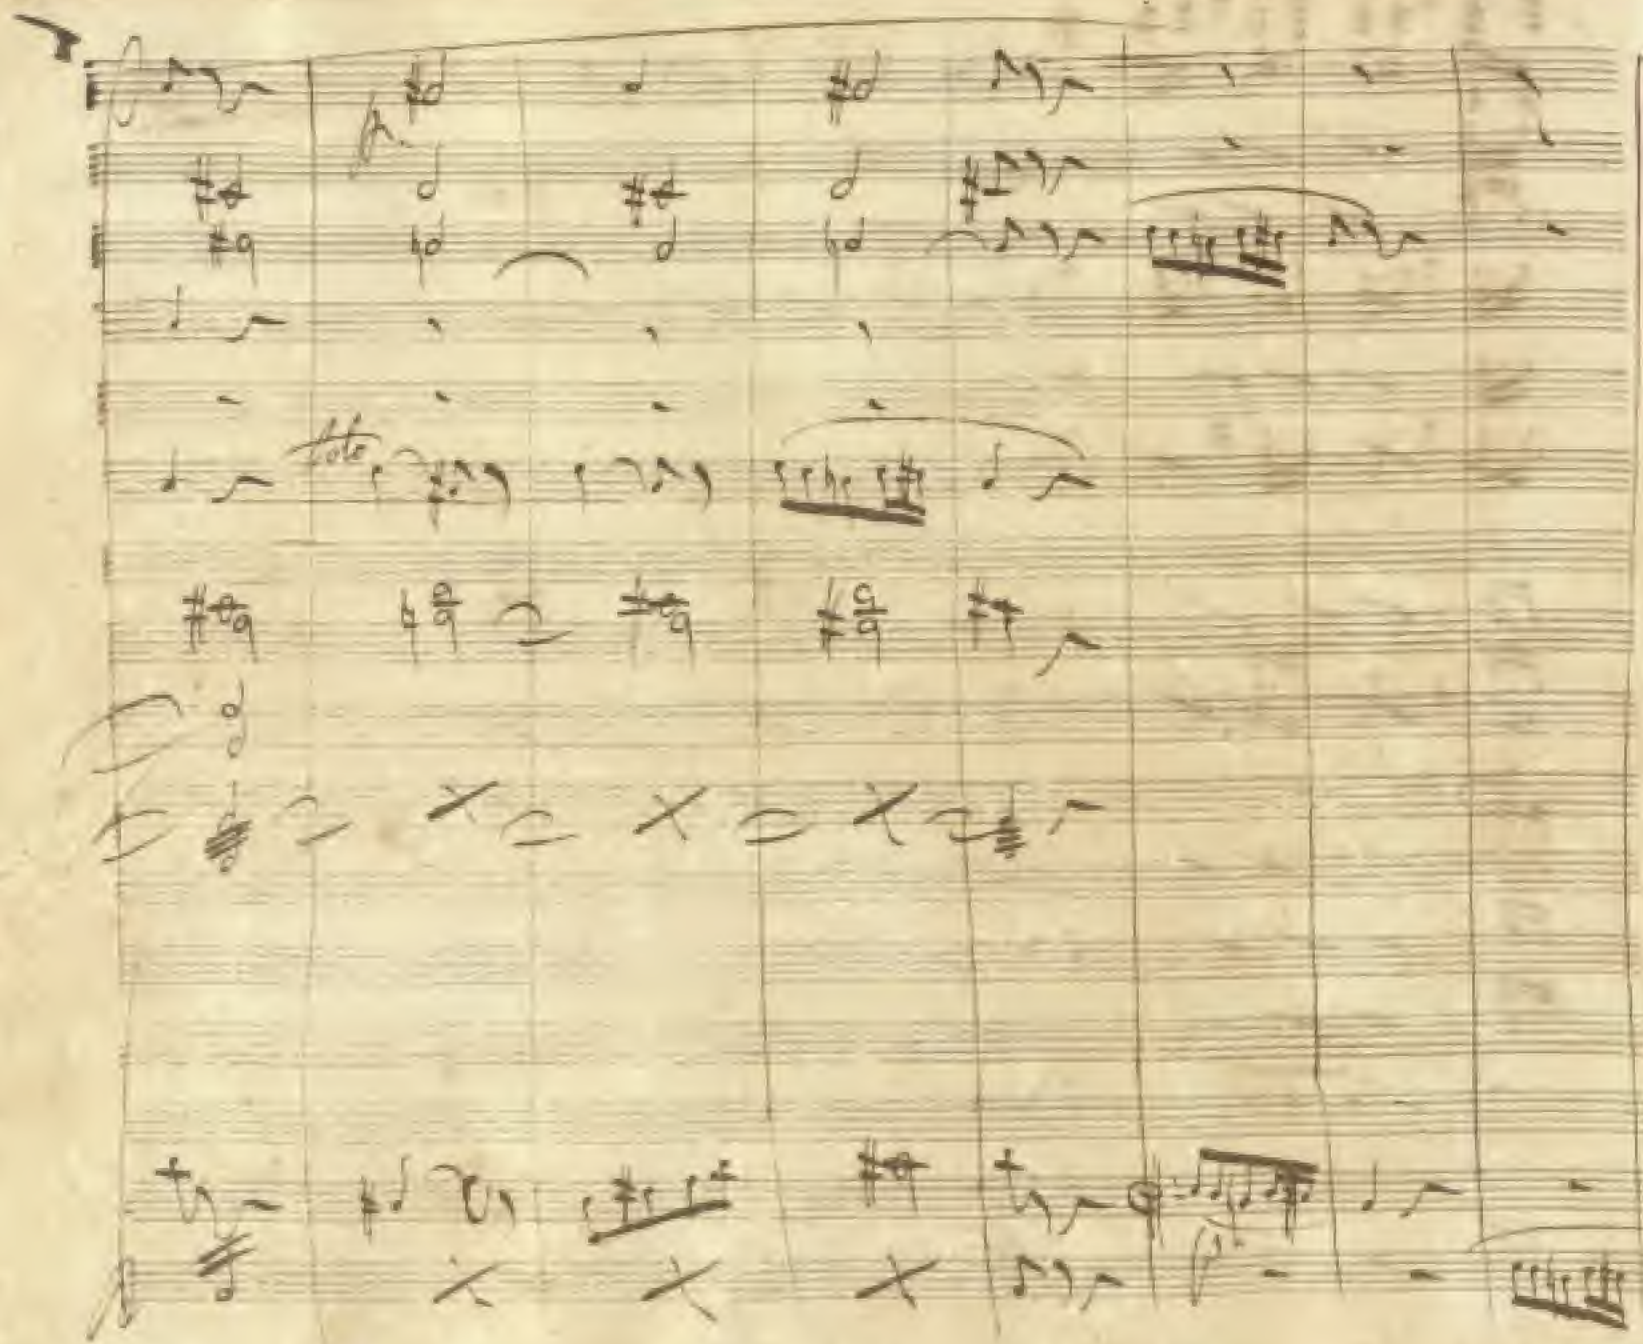 p.
Solo